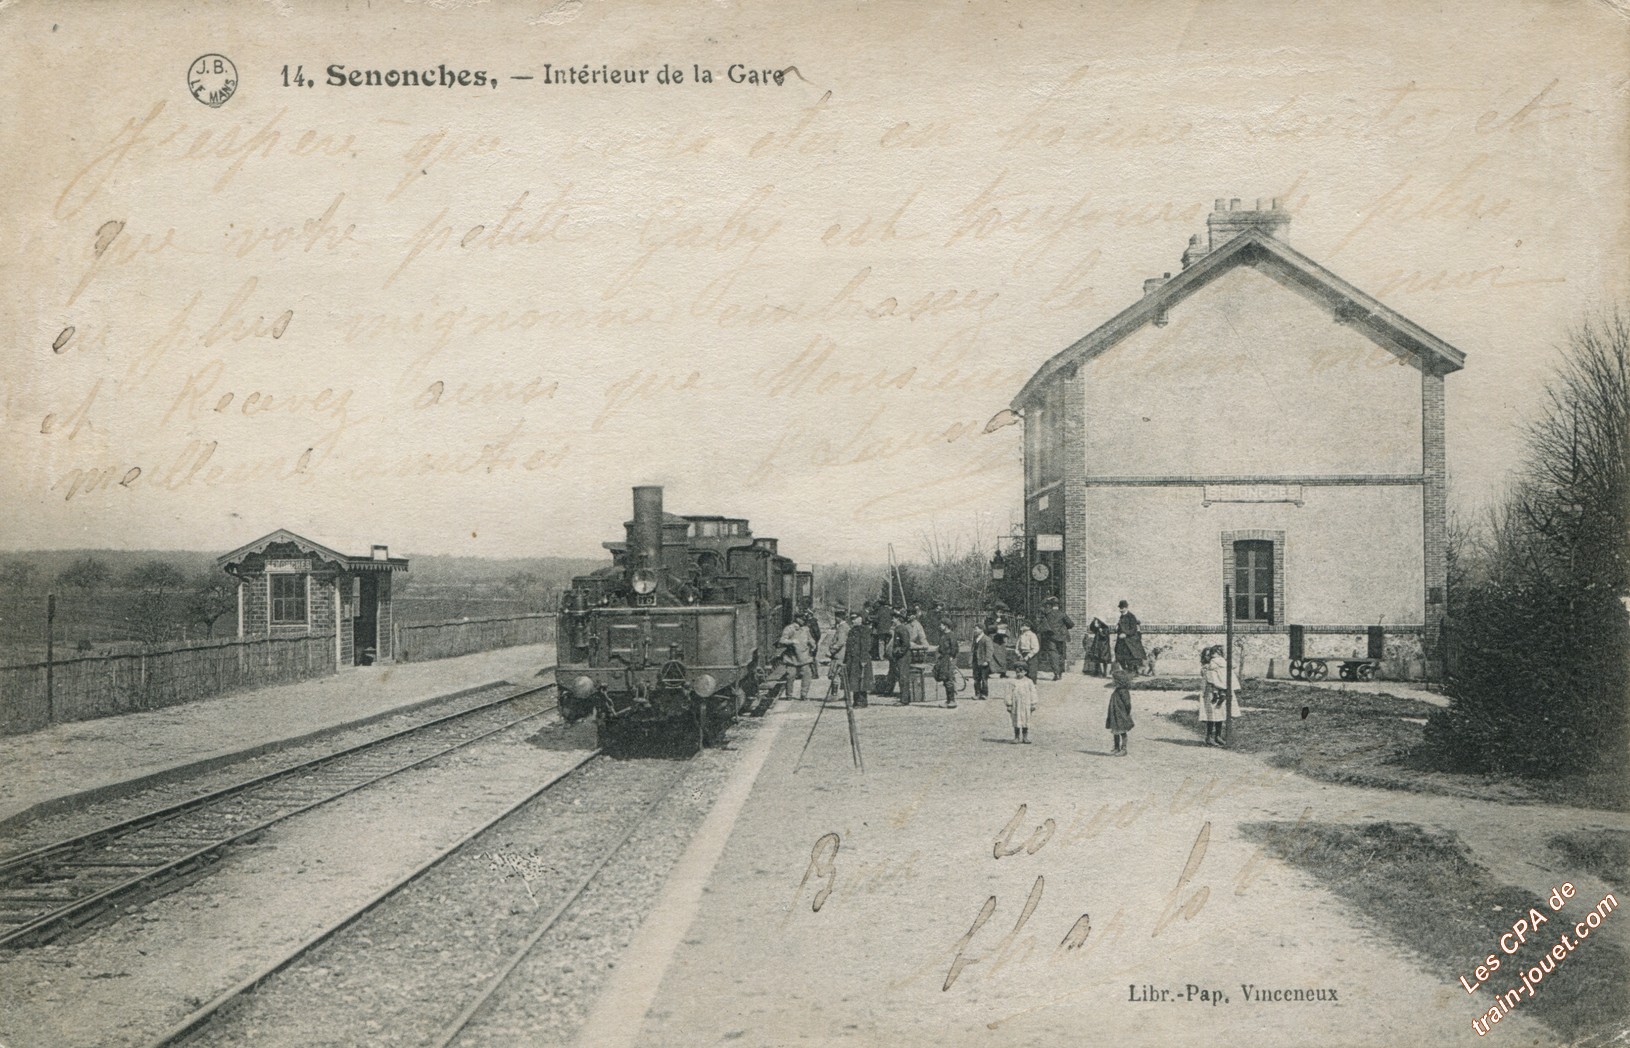 J.B.
LE MANS
14. Senonches. — Intérieur de la Gare
J'espère que vous êtes en bonne santée et
que votre petite Gaby est toujours de plus
en plus mignonne embrassez la moi
et Recevez ainsi que Monsieur mes
meilleures amitiés
SENONCHES
Bon souvenir
Libr.-Pap. Vinceneux
Les CPA de
train-jouet.com